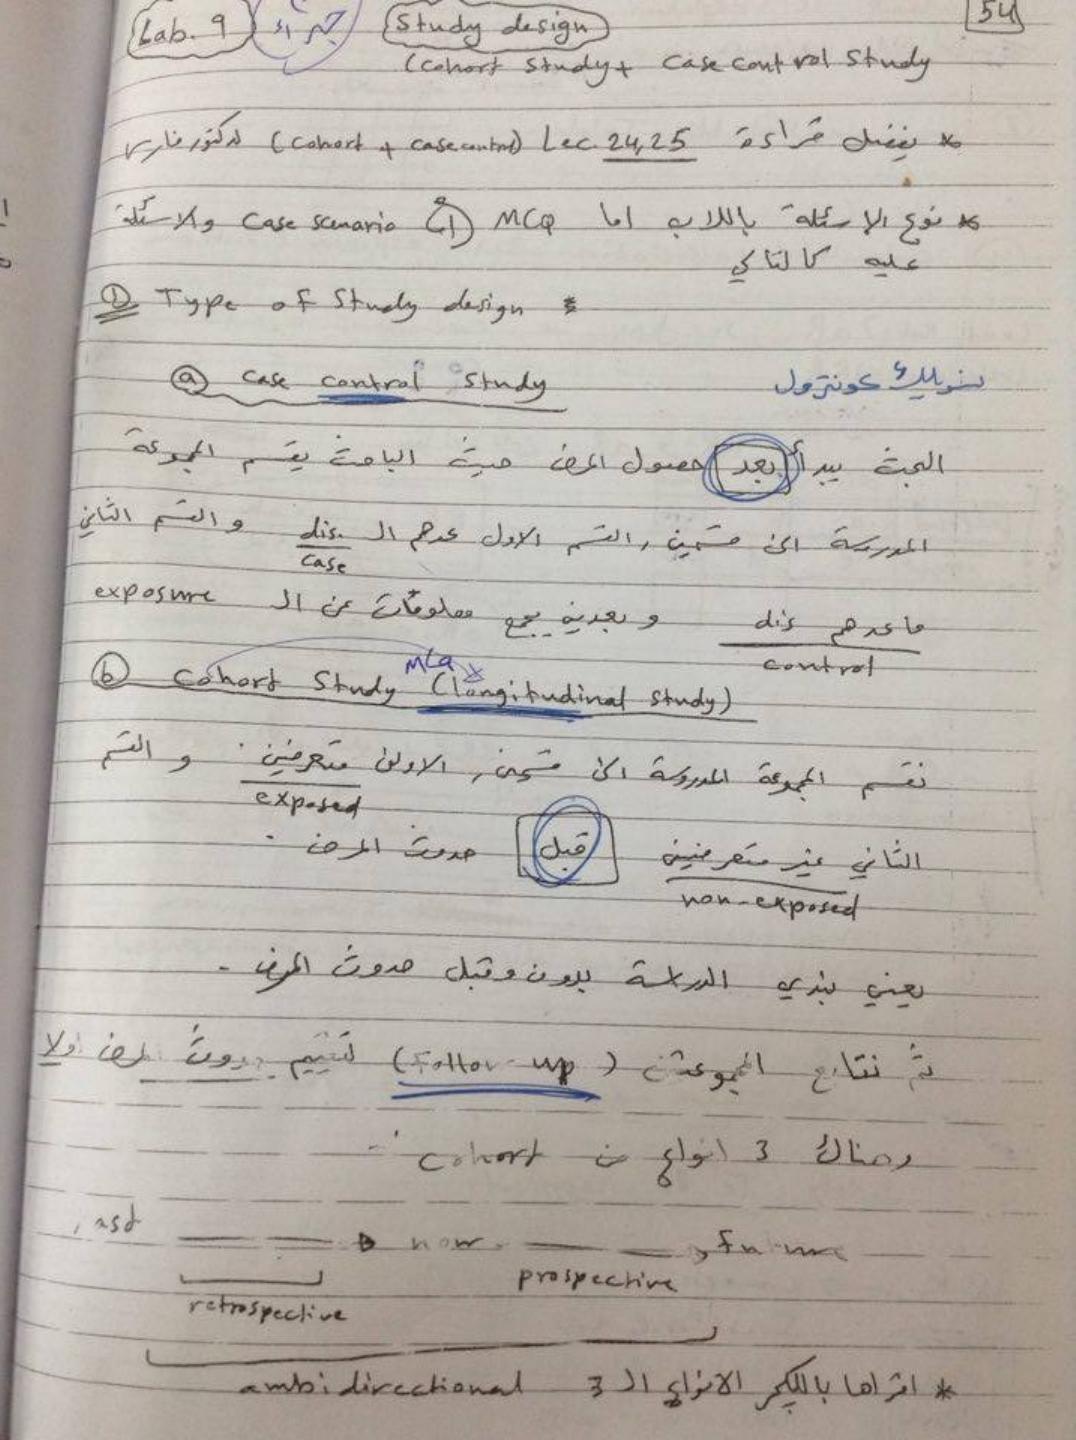 54
Lab. 9 Study design
(Cohort Study + Case control Study
* يفضل قراءة Lec. 24,25 (Cohort + case control) لدكتور فارس
* نوع الاسئلة باللاب اما MCQ أو Case scenario والاسئلة
عليه كالتالي
① Type of Study design :
ⓐ Case control Study كونترول
البحث يبدأ بعد حصول المرض حيث الباحث يقسم المجموعة
المدروسة الى قسمين، القسم الاول عدهم الـ dis. والقسم الثاني
case
ماعدهم dis وبعدين يجمع معلومات عن الـ exposure
control
MCQ
ⓑ Cohort Study (longitudinal study)
نقسم المجموعة المدروسة الى قسمين، الاولى متعرضين و القسم
exposed
الثاني غير متعرضين قبل حدوث المرض .
non-exposed
يعني نبدي الدراسة بدون وقبل حدوث المرض .
ثم نتابع المجموعتين (Follow-up) لتقييم حدوث المرض اولا
وهناك 3 انواع من cohort :
past now future
retrospective prospective
* اقراها بالكجر الانواع الـ 3 ambidirectional